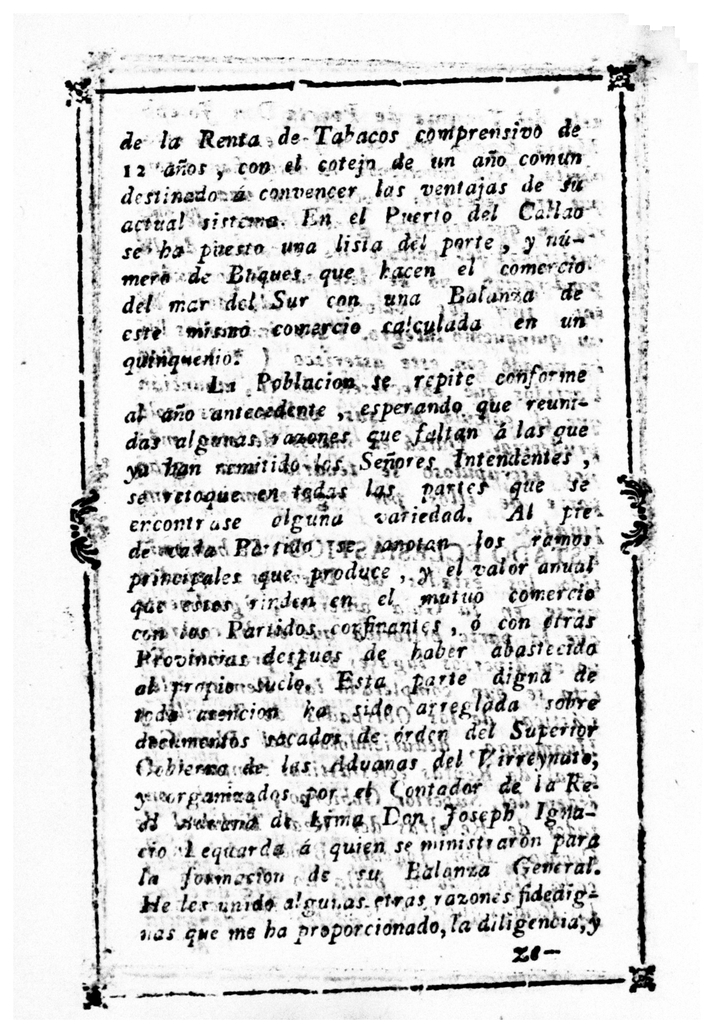 de la Renta de Tabacos comprensivo de
12 años, con el cotejo de un año comun
destinado á convencer las ventajas de su
actual sistema. En el Puerto del Callao
se ha puesto una lista del porte, y nú-
mero de Buques que hacen el comercio
del mar del Sur con una Balanza de
este mismo comercio calculada en un
quinquenio.
La Poblacion se repite conforme
al año antecedente, esperando que reuni-
das algunas razones que faltan á las que
ya han remitido los Señores Intendentes,
se retoque en todas las partes que se
encontrase olguna variedad. Al pie
de cada Partido se anotan los ramos
principales que produce, y el valor anual
que estos rinden en el mutuo comercio
con los Partidos confinantes, ó con otras
Provincias despues de haber abastecido
al propio suelo. Esta parte digna de
toda atencion ha sido arreglada sobre
documentos sacados de órden del Superior
Gobierno de las Aduanas del Virreynato,
y organizados por el Contador de la Re-
al Aduana de Lima Don Joseph Igna-
cio Lequanda á quien se ministrarón para
la formacion de su Balanza General.
He les unido algunas otras razones fidedig-
nas que me ha proporcionado, la diligencia, y
ze-